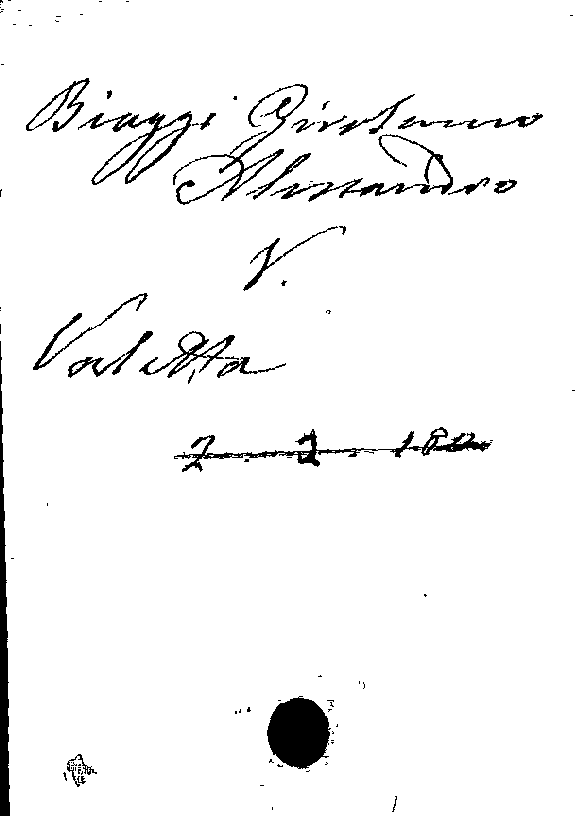 Biaggi Girolamo
Alessandro
V.
Valetta
2. 2. 180